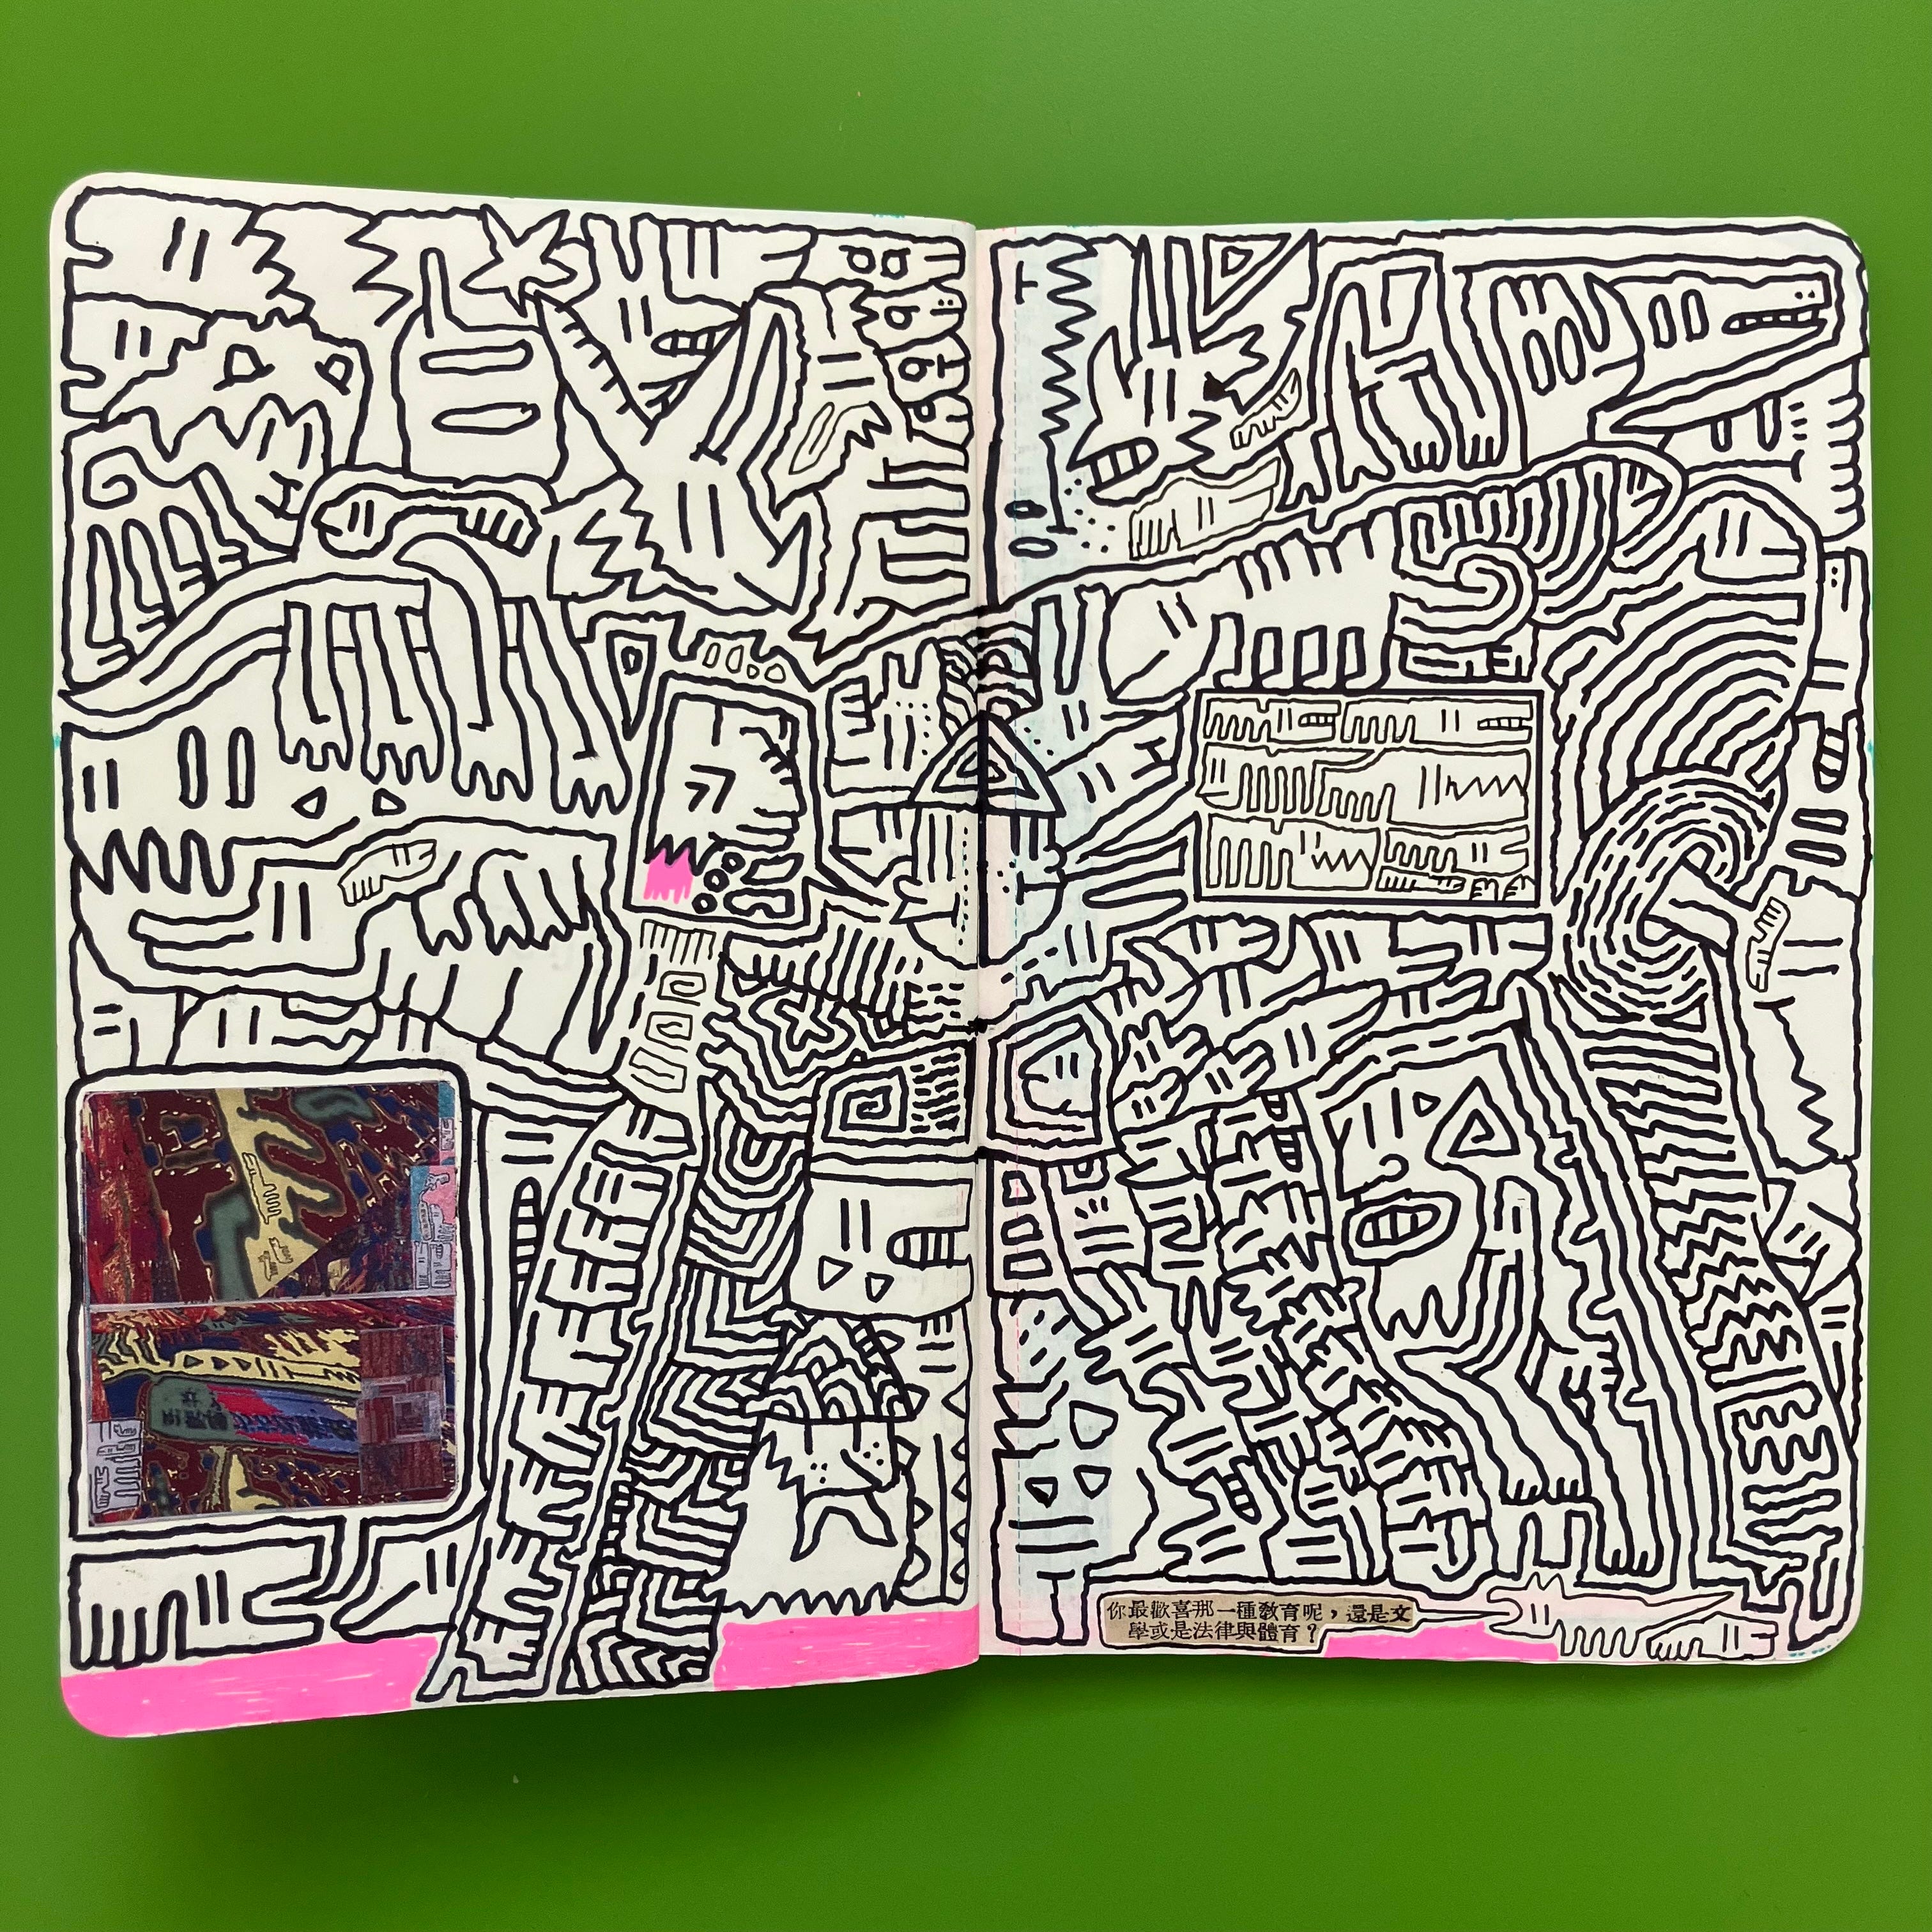 你最歡喜那一種教育呢，還是文
學或是法律與體育？